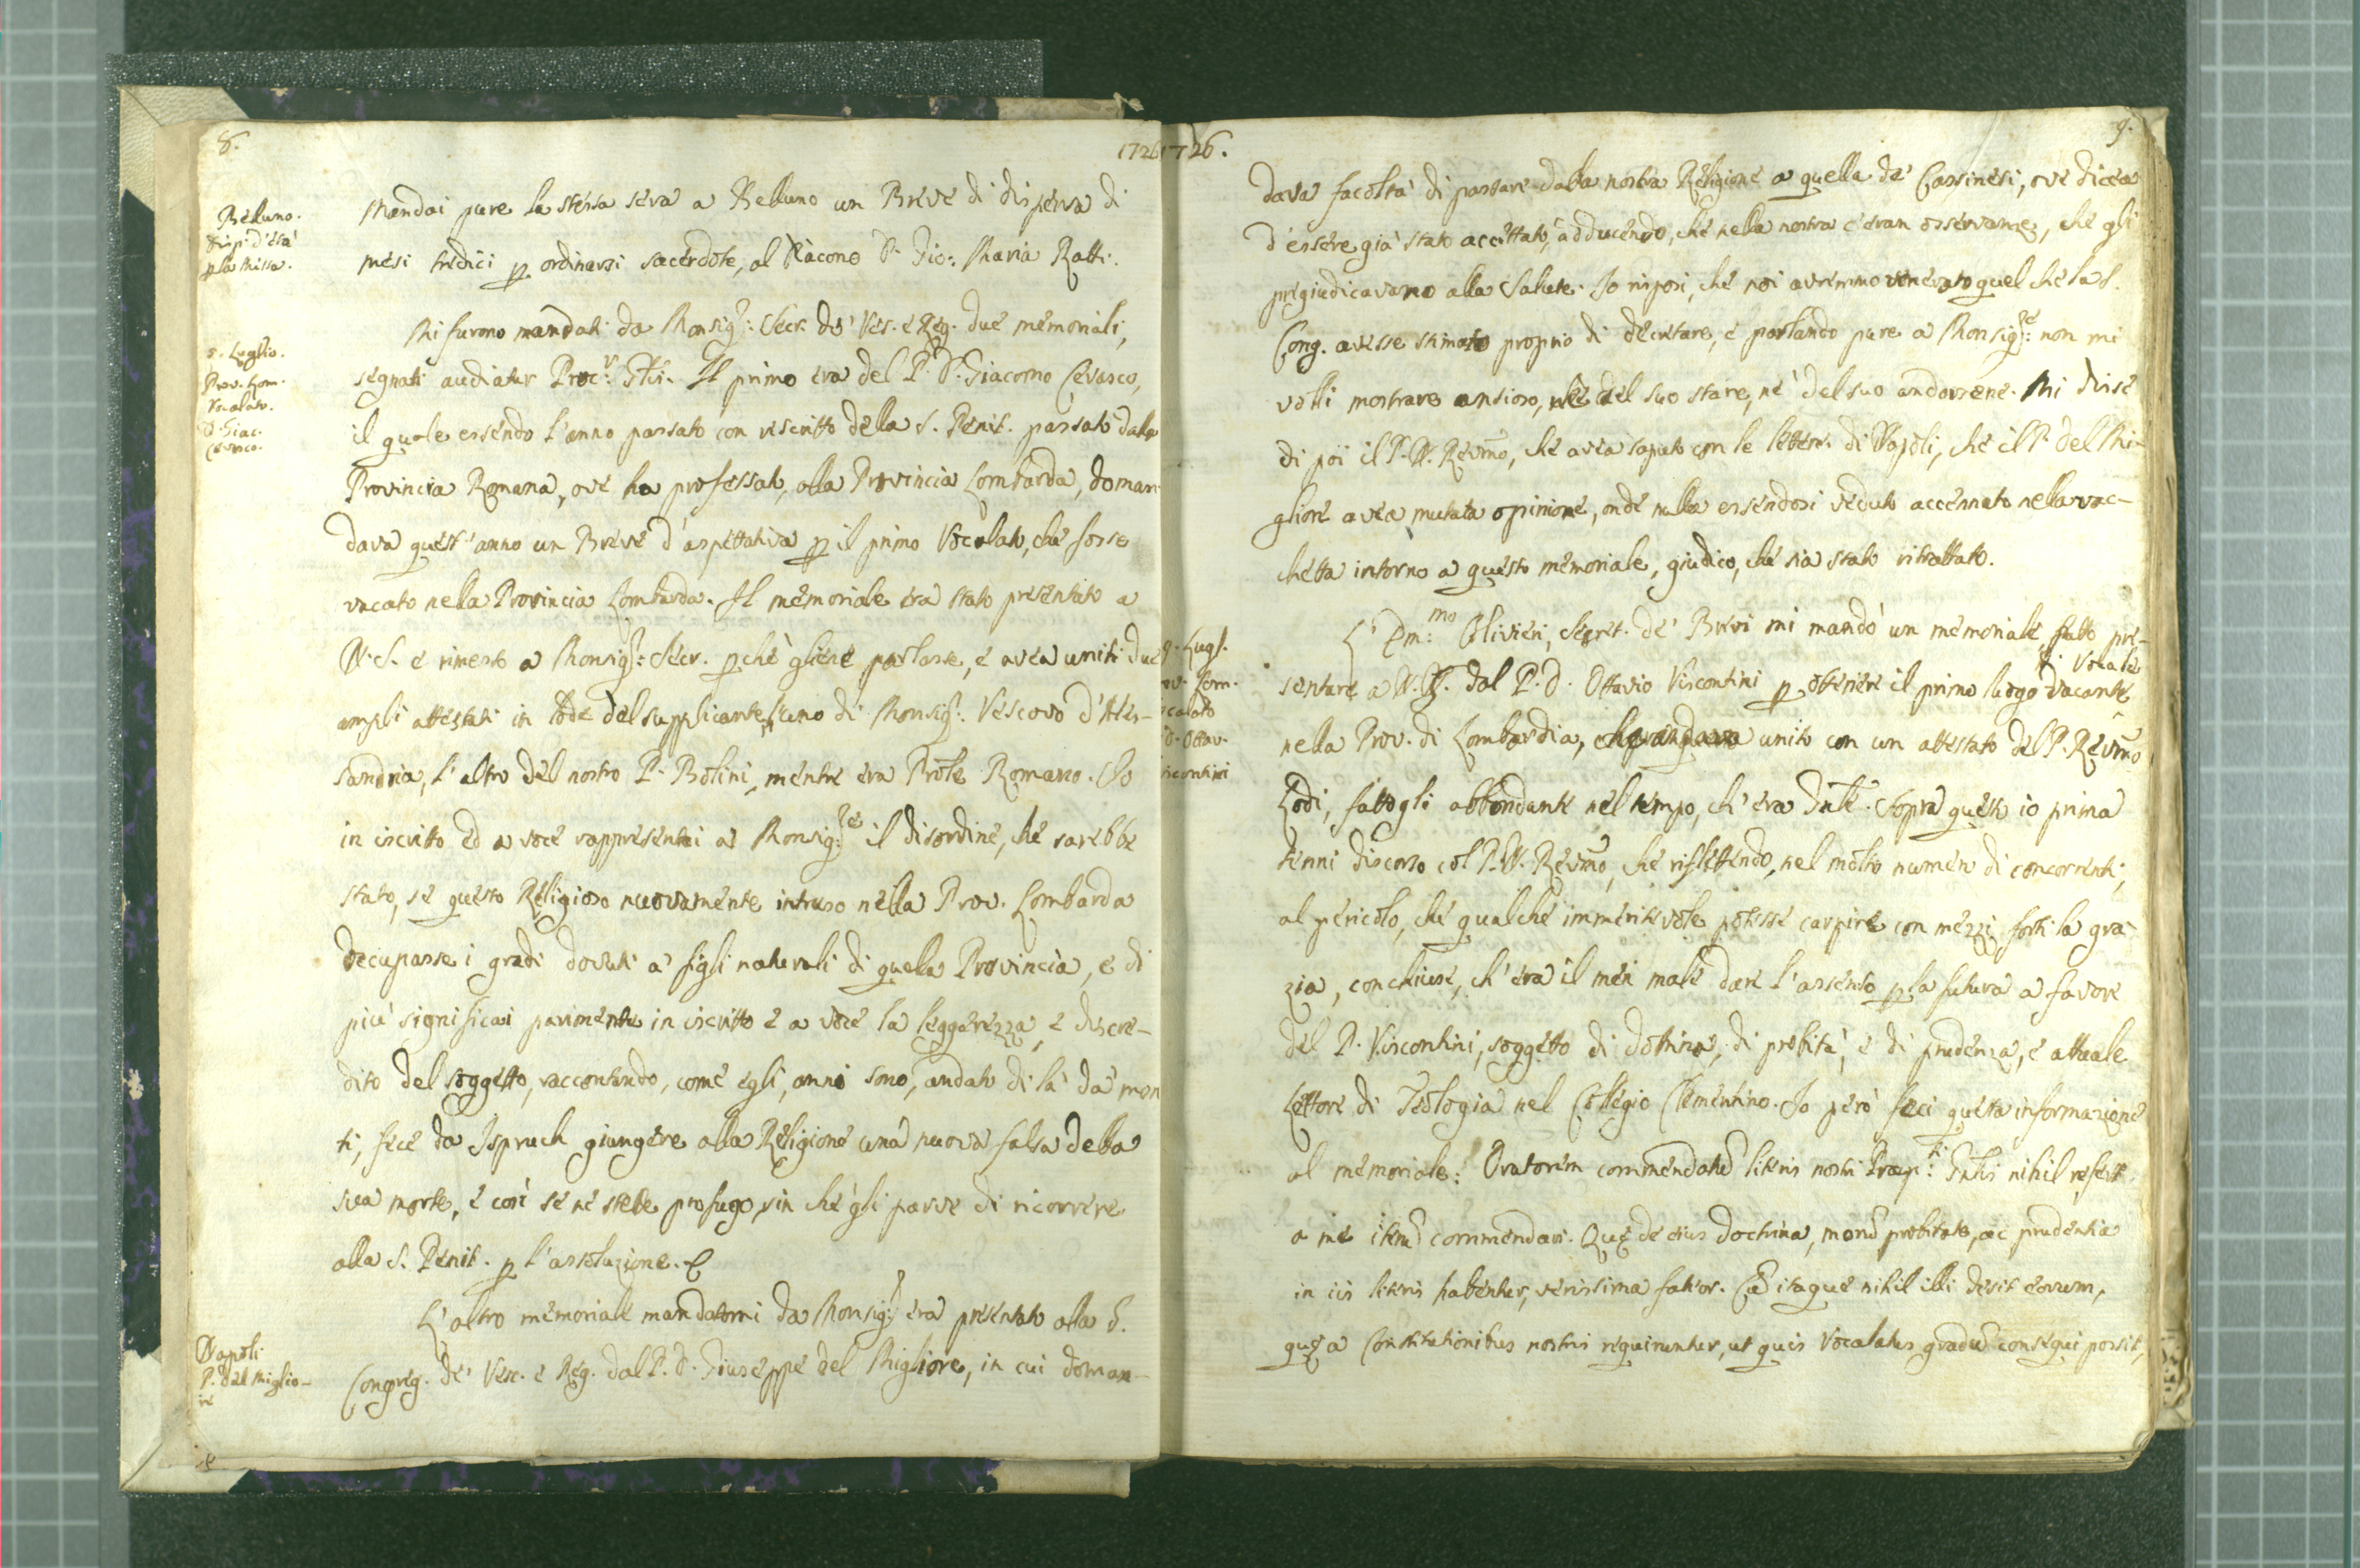 8.
1726
Belluno.
disp: d'età
p la Messa.
Mandai pure la stessa sera a Belluno un Breve di dispensa di
mesi tredici p ordinarsi sacerdote, al Diacono D. Gio: Maria Ratti.
5. Luglio.
Prov. Lom.
Vocalato.
D. Giac.
Cevasco.
Mi furono mandati da Monsig.: Secr. de' Ves. e Reg. due memoriali,
segnati audiatur Proc.r Gñlis. Il primo era del P. D. Giacomo Cevasco,
il quale essendo l'anno passato con rescritto della S. Penit. passato dalla
Provincia Romana, ove ha professato, alla Provincia Lombarda, doman-
dava quest'anno un Breve d'aspettativa p il primo Vocalato, che fosse
vacato nella Provincia Lombarda. Il memoriale era stato presentato a
N. S. e rimesso a Monsig.: Secr. pchè gliene parlasse, e avea uniti due
ampli attestati in lode del supplicante, l'uno di Monsig.: Vescovo d'Ales-
sandria, l'altro del nostro P. Bolini, mentre era Prõle Romano. Io
in iscritto ed a voce rappresentai a Monsig.re il disordine, che sarebbe
stato, se questo Religioso nuovamente intruso nella Prov. Lombarda
occupasse i gradi dovuti a' figli naturali di quella Provincia, e di
più significai parimente in iscritto e a voce la leggerezza, e discre-
dito del soggetto, raccontando, come egli, anni sono, andato di là da' mon
ti, fece da Ispruch giungere alla Religione una nuova falsa della
sua morte, e così se ne stette profugo, sin che gli parve di ricorrere
alla S. Penit. p l'assoluzione.
Napoli
P. Del Miglio-
re
L'altro memoriale mandatomi da Monsig.: era presentato alla S.
Congreg. de' Vesc. e Reg. dal P. D. Giuseppe del Migliore, in cui doman-
1726.
9.
dava facoltà di passare dalla nostra Religione a quella de' Cassinesi, ove dicea
d'essere già stato accettato, adducendo, che nella nostra c'eran osservanze, che gli
pregiudicavano alla salute. Io risposi, che noi avremmo venerato quel che la S.
Cong. avesse stimato proprio di decretare, e parlando pure a Monsig.re: non mi
volli mostrare ansioso, nè del suo stare, nè del suo andarsene. Mi disse
di poi il P. N. Revmo, che avea saputo con le lettere di Napoli, che il P. del Mi-
gliore avea mutata opinione, onde nulla essendosi veduto accennato nella vac-
chetta intorno a questo memoriale, giudico, che sia stato ritrattato.
9. Lugl.
ov. Lom.
calato
D. Ottav.
scontini
L'Em:mo Olivieri, Segret. de' Brevi mi mandò un memoriale, fatto pre-
sentare a N. S. dal P. D. Ottavio Viscontini p ottenere il primo luogo di Vocale vacante
nella Prov. di Lombardia, unito con un attestato del P. Revmo
Lodi, fattogli abbondante nel tempo, ch'era Gñle. Sopra questo io prima
tenni discorso col P. N. Revmo, che riflettendo, nel molto numero di concorrenti,
al pericolo, che qualche immeritevole potesse carpire con mezzi forti la gra-
zia, conchiuse, ch'era il men male dare l'assenso p la futura a favore
del P. Viscontini, soggetto di dottrina, di probità, e di prudenza, e attuale
Lettore di Teologia nel Collegio Clementino. Io però feci questa informazione
al memoriale: Oratorem commendatũ literis nostri Praep.ti: Gñlis nihil refert
a me iterũ commendari. Quę de eius doctrina, morũ probitate, ac prudentia
in iis literis habentur, verissima fateor. Cũ itaque nihil illi desit eorum,
quę a Constitutionibus nostris requiruntur, ut quis Vocalatus gradũ consequi possit,